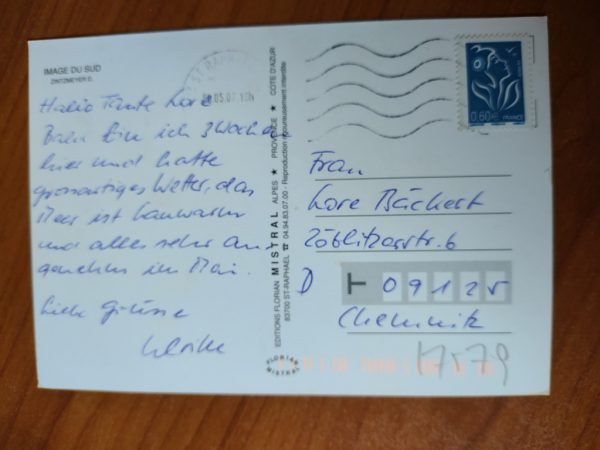 IMAGE DU SUD
ZINTZMEYER D.
Hallo Tante Lore
Bald bin ich 3 Wochen
hier und hatte
grossartiges Wetter, das
Meer ist lauwarm
und alles sehr an
genehm im Mai.
Liebe Grüsse
Ulrike
EDITIONS FLORIAN MISTRAL ALPES ★ PROVENCE ★ COTE D'AZUR
83700 ST-RAPHAEL ☎ 04.94.83.07.00 - Reproduction rigoureusement interdite
FLORIAN MISTRAL
ST RAPHAEL
05.07
0,60€ FRANCE
Frau
Lore Bächert
Zöblitzerstr. 6
D T 09125
Chemnitz
17579